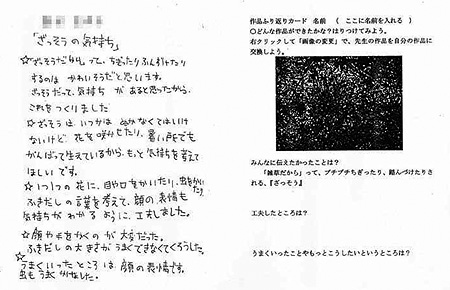 「ざっそうの気持ち」
☆ざっそうだからって、ちぎったりふんだり
するのは かわいそうだと思います。
ざっそうだって、気持ち があると思ったから、
これをつくりました
☆ざっそう は、いつかは ぬかなくてはいけ
ないけど 花を咲かせたり、暑い所でも
がんばって生えているから、もっと 気持ちを考えて
ほしい です。
☆1つ1つの 花に、目や口をかいたり、虫をかいたり
ふきだし の 言葉を考えて、顔の表情も
気持ちが わかる ように、工夫しました。
☆顔や
をかくの が 大変だった。
ふきだしの 大きさが うまくできなくてくろうした。
☆うまくいった ところ は、顔の表情です。
虫も うまく かけました。
作品ふり返りカード 名前 （ ここに名前を入れる ）
○どんな作品ができたかな？はりつけてみよう。
右クリックして「画像の変更」で、先生の作品を自分の作品に
交換しよう。
みんなに伝えたかったことは？
「雑草だから」って、ブチブチちぎったり、踏んづけたりさ
れる、『ざっそう』
工夫したところは？
うまくいったことやもっとこうしたいというところは？